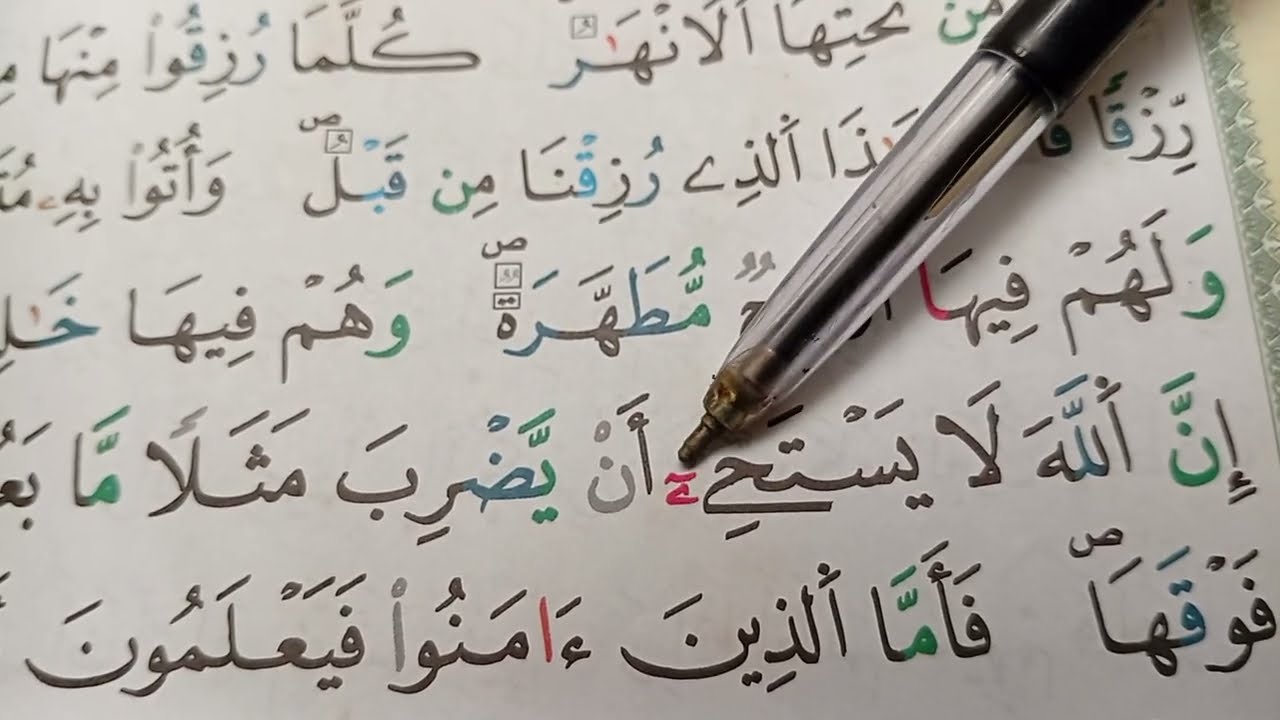 مِن تَحْتِهَا اَ۬لَانْهَٰرُ كُلَّمَا رُزِقُواْ مِنْهَا
رِّزْقاٗ هَٰذَا اَ۬لذِے رُزِقْنَا مِن قَبْلُۖ وَأُتُواْ بِهِۦ
وَلَهُمْ فِيهَا مُّطَهَّرَةٞۖ وَهُمْ فِيهَا
إِنَّ اَ۬للَّهَ لَا يَسْتَحْيِۦٓ أَنْ يَّضْرِبَ مَثَلاٗ مَّا
فَوْقَهَاۖ فَأَمَّا اَ۬لذِينَ ءَامَنُواْ فَيَعْلَمُونَ